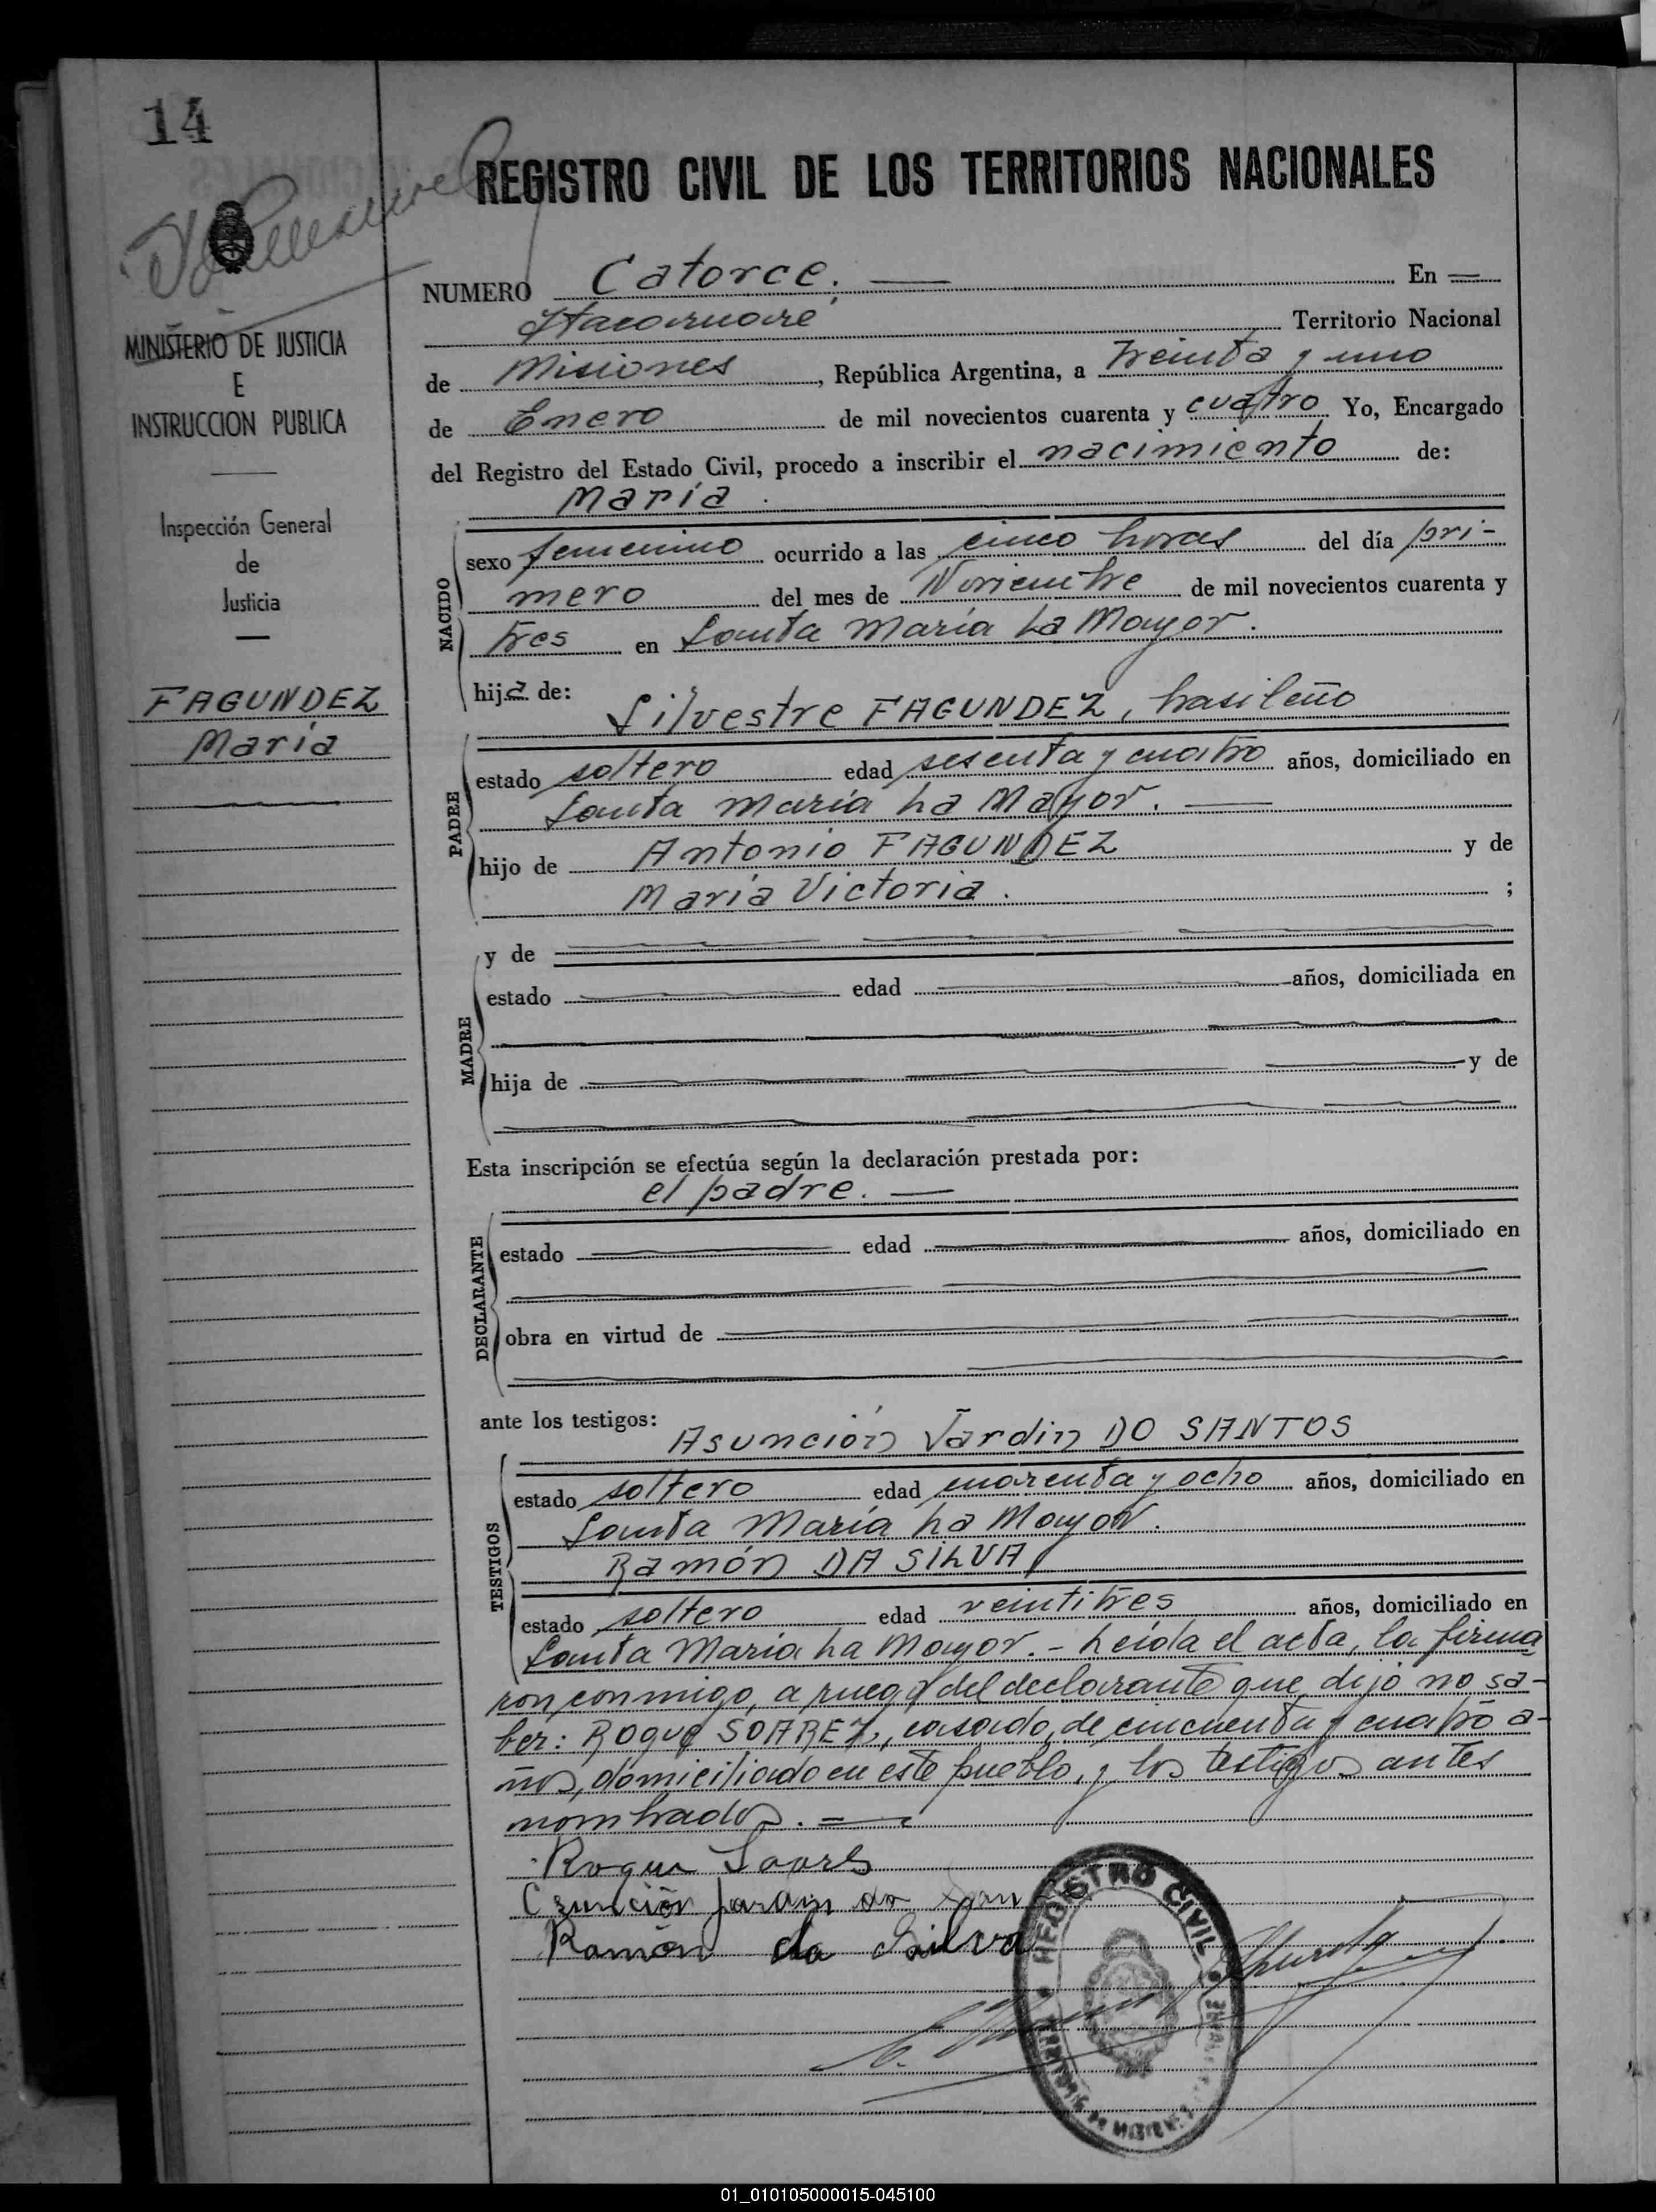 14
REGISTRO CIVIL DE LOS TERRITORIOS NACIONALES
NUMERO Catorce. En
Itacaruaré Territorio Nacional
de Misiones, República Argentina, a treinta y uno
de Enero de mil novecientos cuarenta y cuatro Yo, Encargado
del Registro del Estado Civil, procedo a inscribir el nacimiento de:
María.
MINISTERIO DE JUSTICIA
E
INSTRUCCION PUBLICA
Inspección General
de
Justicia
FAGUNDEZ
María
NACIDO
sexo femenino ocurrido a las cinco horas del día pri-
mero del mes de Noviembre de mil novecientos cuarenta y
tres en Santa María La Mayor.
hija de:
Silvestre FAGUNDEZ, brasileño
PADRE
estado soltero edad sesenta y cuatro años, domiciliado en
Santa María La Mayor.
hijo de Antonio FAGUNDEZ y de
María Victoria. ;
MADRE
y de
estado edad años, domiciliada en
hija de y de
Esta inscripción se efectúa según la declaración prestada por:
el padre.
DECLARANTE
estado edad años, domiciliado en
obra en virtud de
ante los testigos:
Asunción Jardin DO SANTOS
TESTIGOS
estado soltero edad cuarenta y ocho años, domiciliado en
Santa María La Mayor.
Ramón DA SILVA
estado soltero edad veintitres años, domiciliado en
Santa María La Mayor. - Leída el acta, la firma
ron conmigo, a ruego del declarante que dijo no sa-
ber: Roque SOAREZ, casado, de cincuenta y cuatro a-
ños, domiciliado en este pueblo, y los testigos antes
nombrados.
Roque Soares
Czunción Jardin do
Ramón da Silva
REGISTRO CIVIL
01_010105000015-045100